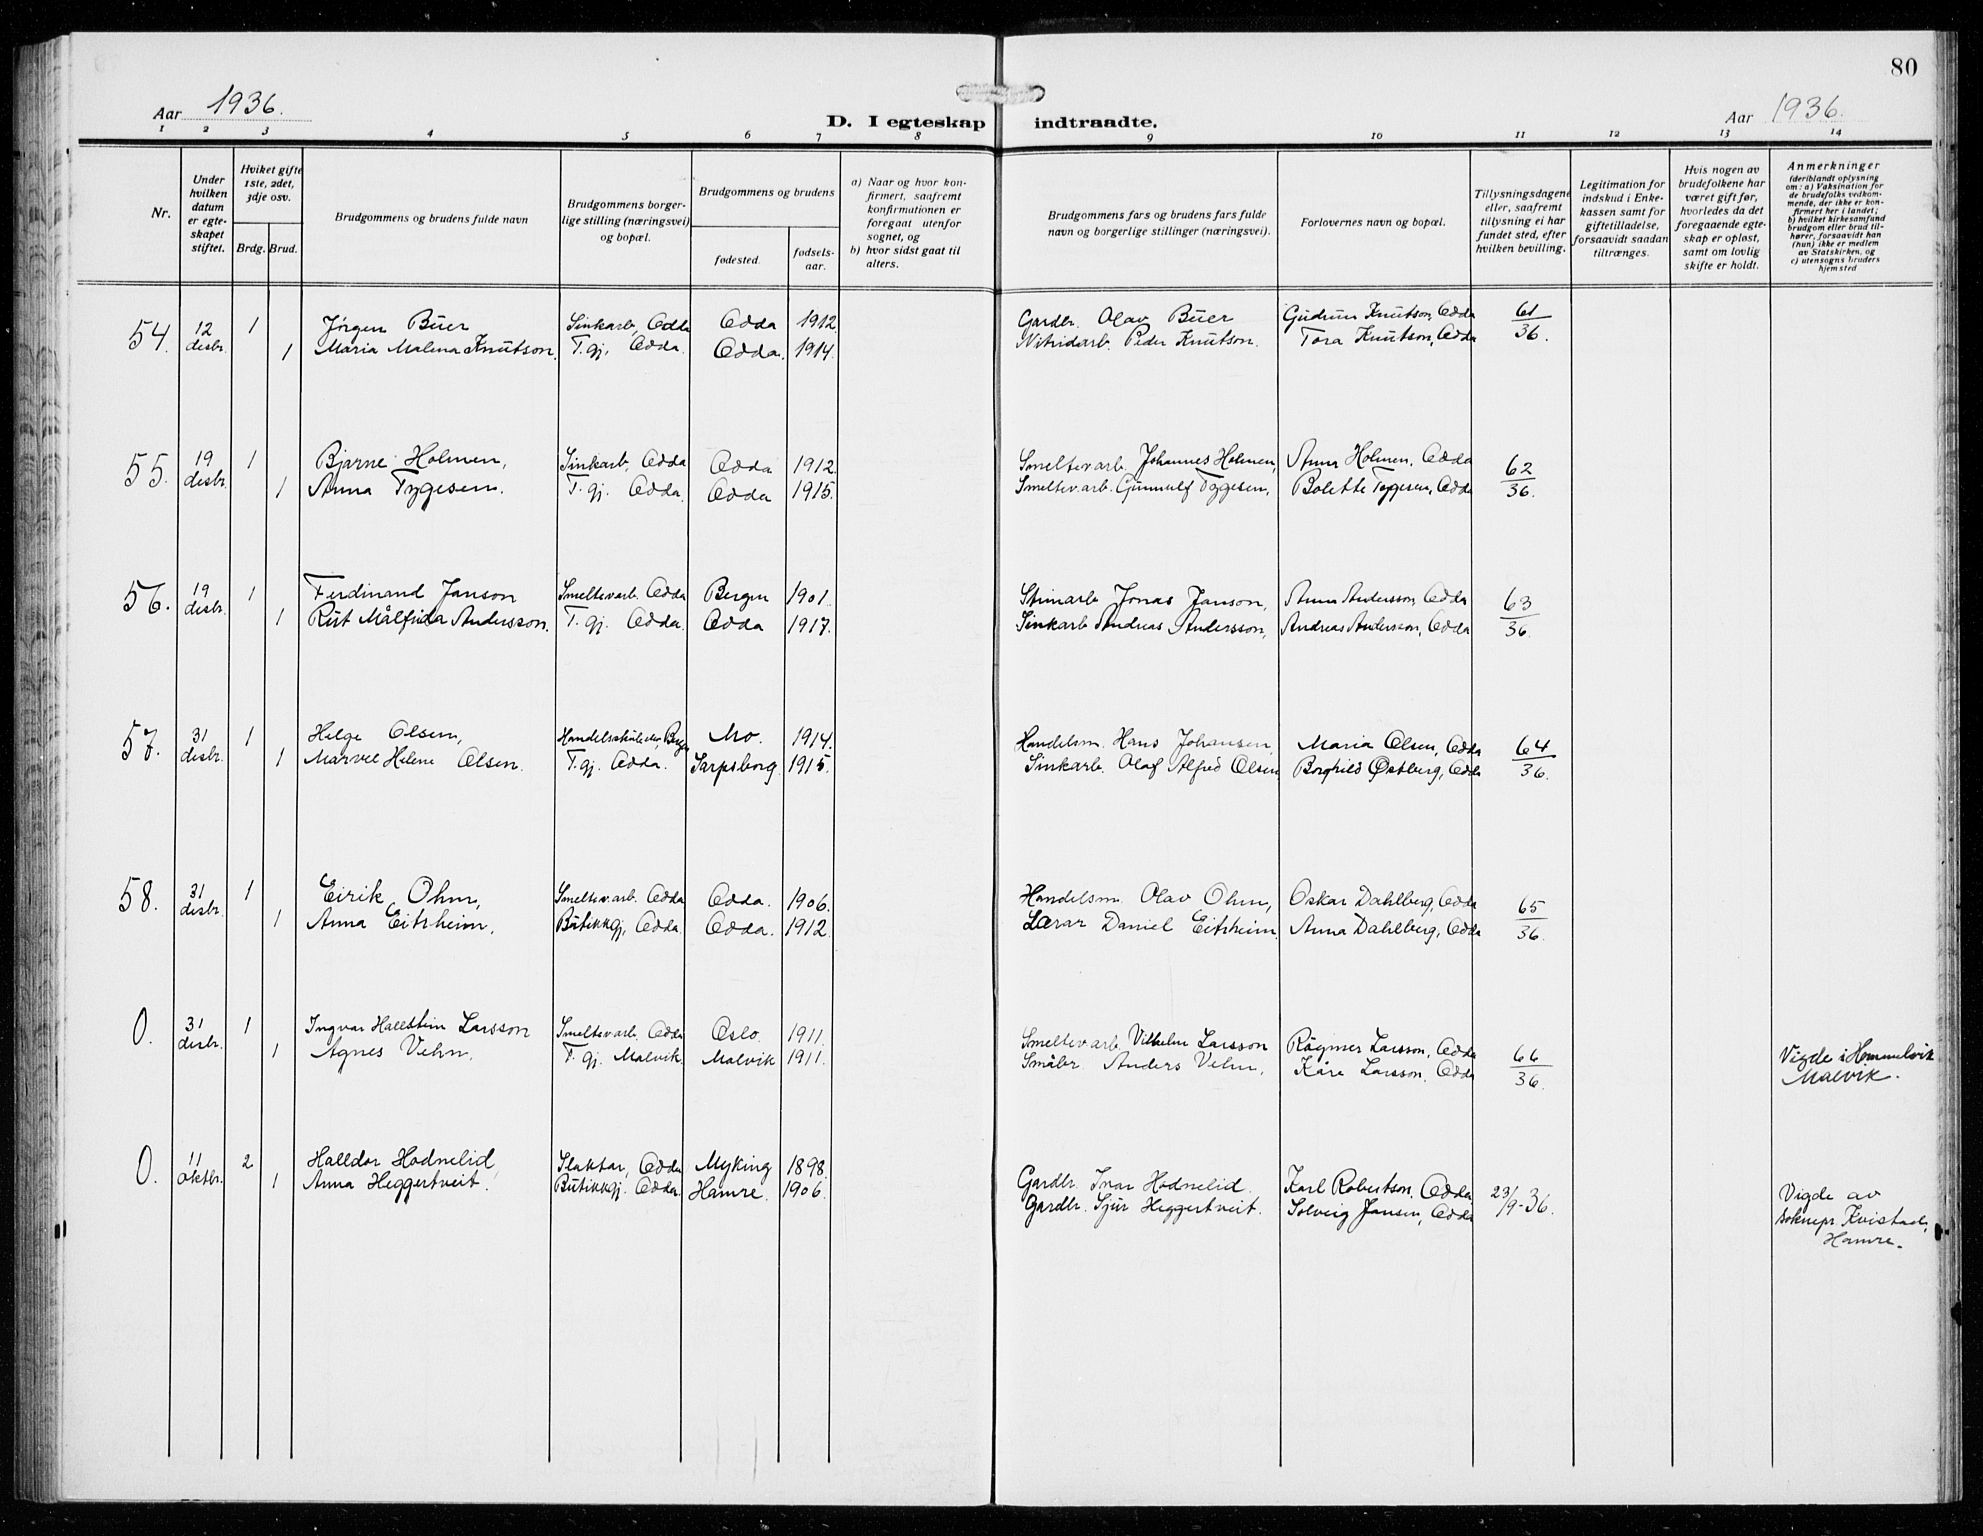 80
Aar 1936.
D. I egteskap indtraadte.
Aar 1936.
1 2 3 4 5 6 7 8 9 10 11 12 13 14
Nr.
Under hvilken datum er egteskapet stiftet.
Hviket gifte 1ste, 2det, 3dje osv.
Brdg. Brud.
Brudgommens og brudens fulde navn
Brudgommens borgerlige stilling (næringsvei) og bopæl.
Brudgommens og brudens
fødested.
fødselsaar.
a) Naar og hvor konfirmert, saafremt konfirmationen er foregaat utenfor sognet, og
b) hvor sidst gaat til alters.
Brudgommens fars og brudens fars fulde navn og borgerlige stillinger (næringsvei).
Forlovernes navn og bopæl.
Tillysningsdagene eller, saafremt tillysning ei har fundet sted, efter hvilken bevilling.
Legitimation for indskud i Enkekassen samt for giftetilladelse, forsaavidt saadan tiltrænges.
Hvis nogen av brudefolkene har været gift før, hvorledes da det foregaaende egteskap er opløst, samt om lovlig skifte er holdt.
Anmerkninger
(deriblandt oplysning om: a) Vaksination for de brudefolks vedkommende, der ikke er konfirmert her i landet; b) hvilket kirkesamfund brudgom eller brud tilhører, forsaavidt han (hun) ikke er medlem av Statskirken, og c) utensogns bruders hjemsted
54. 12 desbr. 1 Jørgen Buer Sinkarb, Odda Odda 1912 Gardbr. Olav Buer Gudrun Knutson, Odda 61/36.
1 Maria Malena Knutson. T. gj, Odda. Odda. 1914. Nitridarb. Peder Knutson. Tora Knutson, Odda
55. 19 desbr. 1 Bjarne Holmen, Sinkarb, Odda Odda 1912. Smeltev.arb. Johannes Holmen, Anna Holmen, Odda 62/36.
1 Anna Tygesen. T. gj. Odda. Odda 1915. Smeltev.arb. Gunnulf Tygesen, Bolette Tygesen, Odda
56. 19 desbr. 1 Ferdinand Janson Smeltevarb. Odda Bergen 1901. Jonas Janson, Anna Andersson, Odda 63/36.
1 Rut Målfrida Andersson. T. gj. Odda. Odda 1917. Sinkarb Andreas Andersson, Andreas Andersson, Odda
57. 31 desbr. 1 Helge Olsen, Mo. 1914. Handelsm. Hans Johansen, Maria Olsen, Odda 64/36.
1 Helene Olsen. T. gj. Odda. Sarpsborg. 1915. Sinkarb. Olaf Alfred Olsen Borghild Østberg, Odda
58. 31 desbr. 1 Eirik Ohm, Smeltev.arb. Odda Odda. 1906. Handelsm. Olav Ohm, Oskar Dahlberg, Odda 65/36.
1 Anna Eitrheim. Butikkgj, Odda. Odda. 1912. Lærar Daniel Eitrheim. Anna Dahlberg, Odda
0. 31 desbr. 1 Ingvar Hallstein Larsson Smeltevarb. Odda Oslo. 1911. Smeltevarb. Vilhelm Larsson Ragmer Larsson, Odda 66/36.
1 Agnes Vehn. T. gj. Malvik. Malvik 1911. Småbr. Anders Vehn, Kåre Larsson. Odda
Vigde i Hommelvik
Malvik.
0. 11 oktbr. 2 Halldor Hodnelid, Slaktar, Odda Myking 1898 Gardbr. Ivar Hodnelid. Karl Robertson. Odda 23/9-36.
1 Anna Heggertveit. Butikkgj. Odda. Hamre. 1906. Gardbr. Sjur Heggertveit. Solveig Jansen, Odda
Vigde av
soknepr Kvistad,
Hamre.